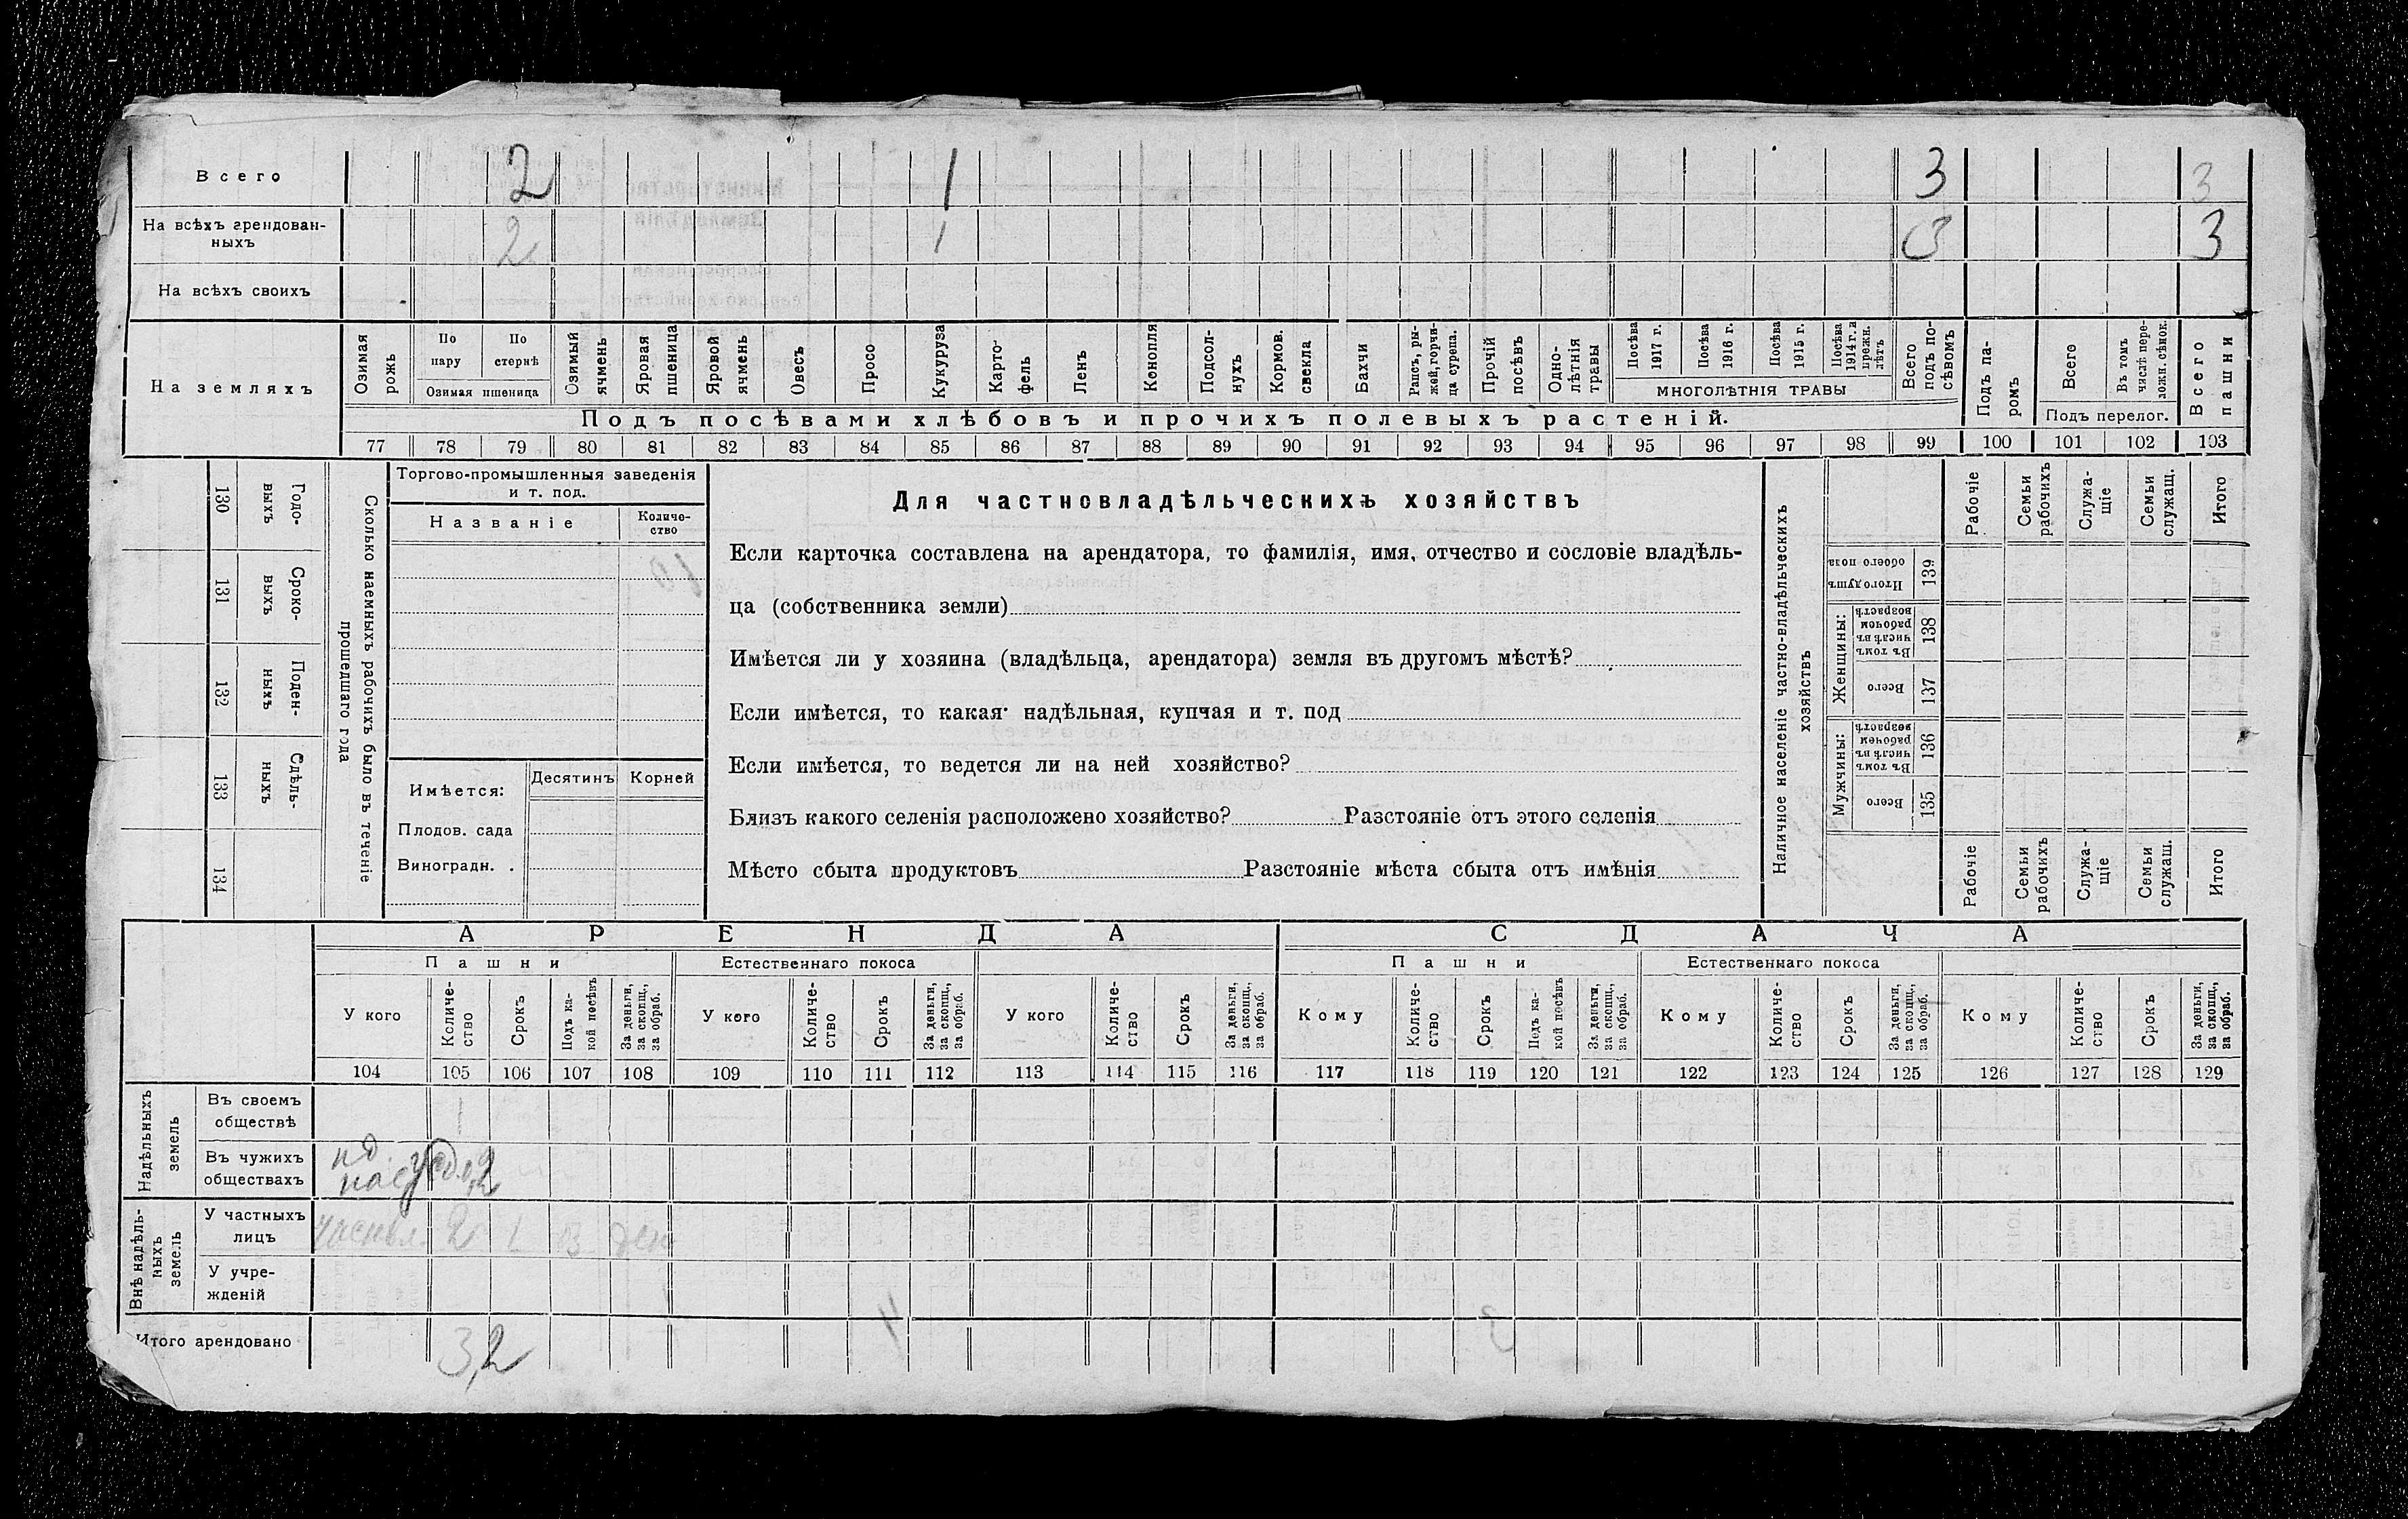 Всего 2 1 3 3
На всѣхъ арендован-
ныхъ 2 1 3 3
На всѣхъ своихъ
На земляхъ
Озимая рожь
По пару
По стернѣ
Озимая пшеница
Озимый ячмень
Яровая пшеница
Яровой ячмень
Овесъ
Просо
Кукуруза
Карто-
фель
Ленъ
Конопля
Подсол-
нухъ
Кормов. свекла
Бахчи
Рапсъ, ры-
жей, горчи-
ца сурепа.
Прочій посѣвъ
Одно-
лѣтнія травы
Посѣва 1917 г.
Посѣва 1916 г.
Посѣва 1915 г.
Посѣва 1914 г. и прежн. лѣтъ
МНОГОЛѢТНІЯ ТРАВЫ
Всего подъ по-
сѣвомъ
Подъ па-
ромъ
Всего
Въ томъ числѣ пере-
ложн. сѣнок.
Подъ перелог.
Всего пашни
Подъ посѣвами хлѣбовъ и прочихъ полевыхъ растеній.
77 78 79 80 81 82 83 84 85 86 87 88 89 90 91 92 93 94 95 96 97 98 99 100 101 102 103
130 Годо-
выхъ
131 Сроко-
выхъ
132 Поден-
ныхъ
133 Сдѣль-
ныхъ
134
Сколько наемныхъ рабочихъ было въ теченіе
прошедшаго года
Торгово-промышленныя заведенія
и т. под.
Названіе
Количе-
ство
Имѣется:
Десятинъ Корней
Плодов. сада
Виноградн. .
Для частновладѣльческихъ хозяйствъ
Если карточка составлена на арендатора, то фамилія, имя, отчество и сословіе владѣль-
ца (собственника земли)
Имѣется ли у хозяина (владѣльца, арендатора) земля въ другомъ мѣстѣ?
Если имѣется, то какая· надѣльная, купчая и т. под
Если имѣется, то ведется ли на ней хозяйство?
Близъ какого селенія расположено хозяйство? Разстояніе отъ этого селенія
Мѣсто сбыта продуктовъ Разстояніе мѣста сбыта отъ имѣнія
Наличное населеніе частно-владѣльческихъ
хозяйствъ
Рабочіе
Семьи рабочихъ
Служа-
щіе
Семьи служащ.
Итого
Итого душъ
обоего пола
139
Женщины:
Въ томъ числѣ въ рабочем возрастѣ
138
Всего
137
Мужчины:
Въ томъ числѣ въ рабочем возрастѣ
136
Всего
135
Рабочіе
Семьи рабочихъ
Служа-
щіе
Семьи служащ.
Итого
АРЕНДА СДАЧА
Пашни Естественнаго покоса Пашни Естественнаго покоса
У кого
Количе-
ство
Срокъ
Подъ ка-
кой посѣвъ
За деньги, за скопщ., за обраб.
У кого
Количе-
ство
Срокъ
За деньги, за скопщ., за обраб.
У кого
Количе-
ство
Срокъ
За деньги, за скопщ., за обраб.
Кому
Количе-
ство
Срокъ
Подъ ка-
кой посѣвъ
За деньги, за скопщ., за обраб.
Кому
Количе-
ство
Срокъ
За деньги, за скопщ., за обраб.
Кому
Количе-
ство
Срокъ
За деньги, за скопщ., за обраб.
104 105 106 107 108 109 110 111 112 113 114 115 116 117 118 119 120 121 122 123 124 125 126 127 128 129
Надѣльныхъ
земель
Въ своемъ
обществѣ 1
Въ чужихъ
обществахъ
Внѣ надѣль-
ныхъ
земель
У частныхъ
лицъ 2 1
У учре-
жденій
Итого арендовано 3,2